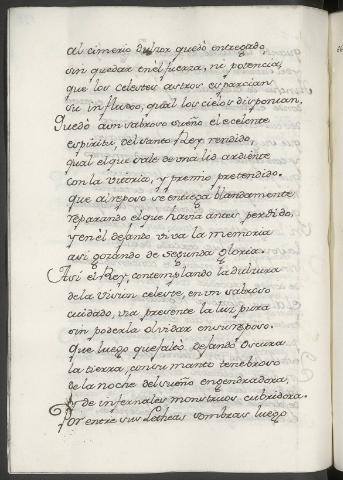 al cimerio dulzor quedò entregado
sin quedar en èl fuerza, ni potencia,
que los celestes astros esparcian
su influxo, qual los cielos disponian.
Quedò a un sabroso sueño el ecelente
espiritu, del santo Rey rendido,
qual el que sale de una lid ardiente
con la vitoria, y premio pretendido.
que al reposo se entrega blandamente
reparando el que havia antes perdido,
y en èl dejando viva la memoria
asi gozando de segunda gloria.
Asi el Rey, contemplando la dulzura
de la vision celeste, en un sabroso
cuidado, via presente la luz pura
sin poderla olvidar en su reposo.
Que luego que faltò dejando oscura
la tierra, con su manto tenebroso
de la noche del sueño engendradora,
y de infernales monstruos cubridora.
Por entre sus Letheas sombras luego